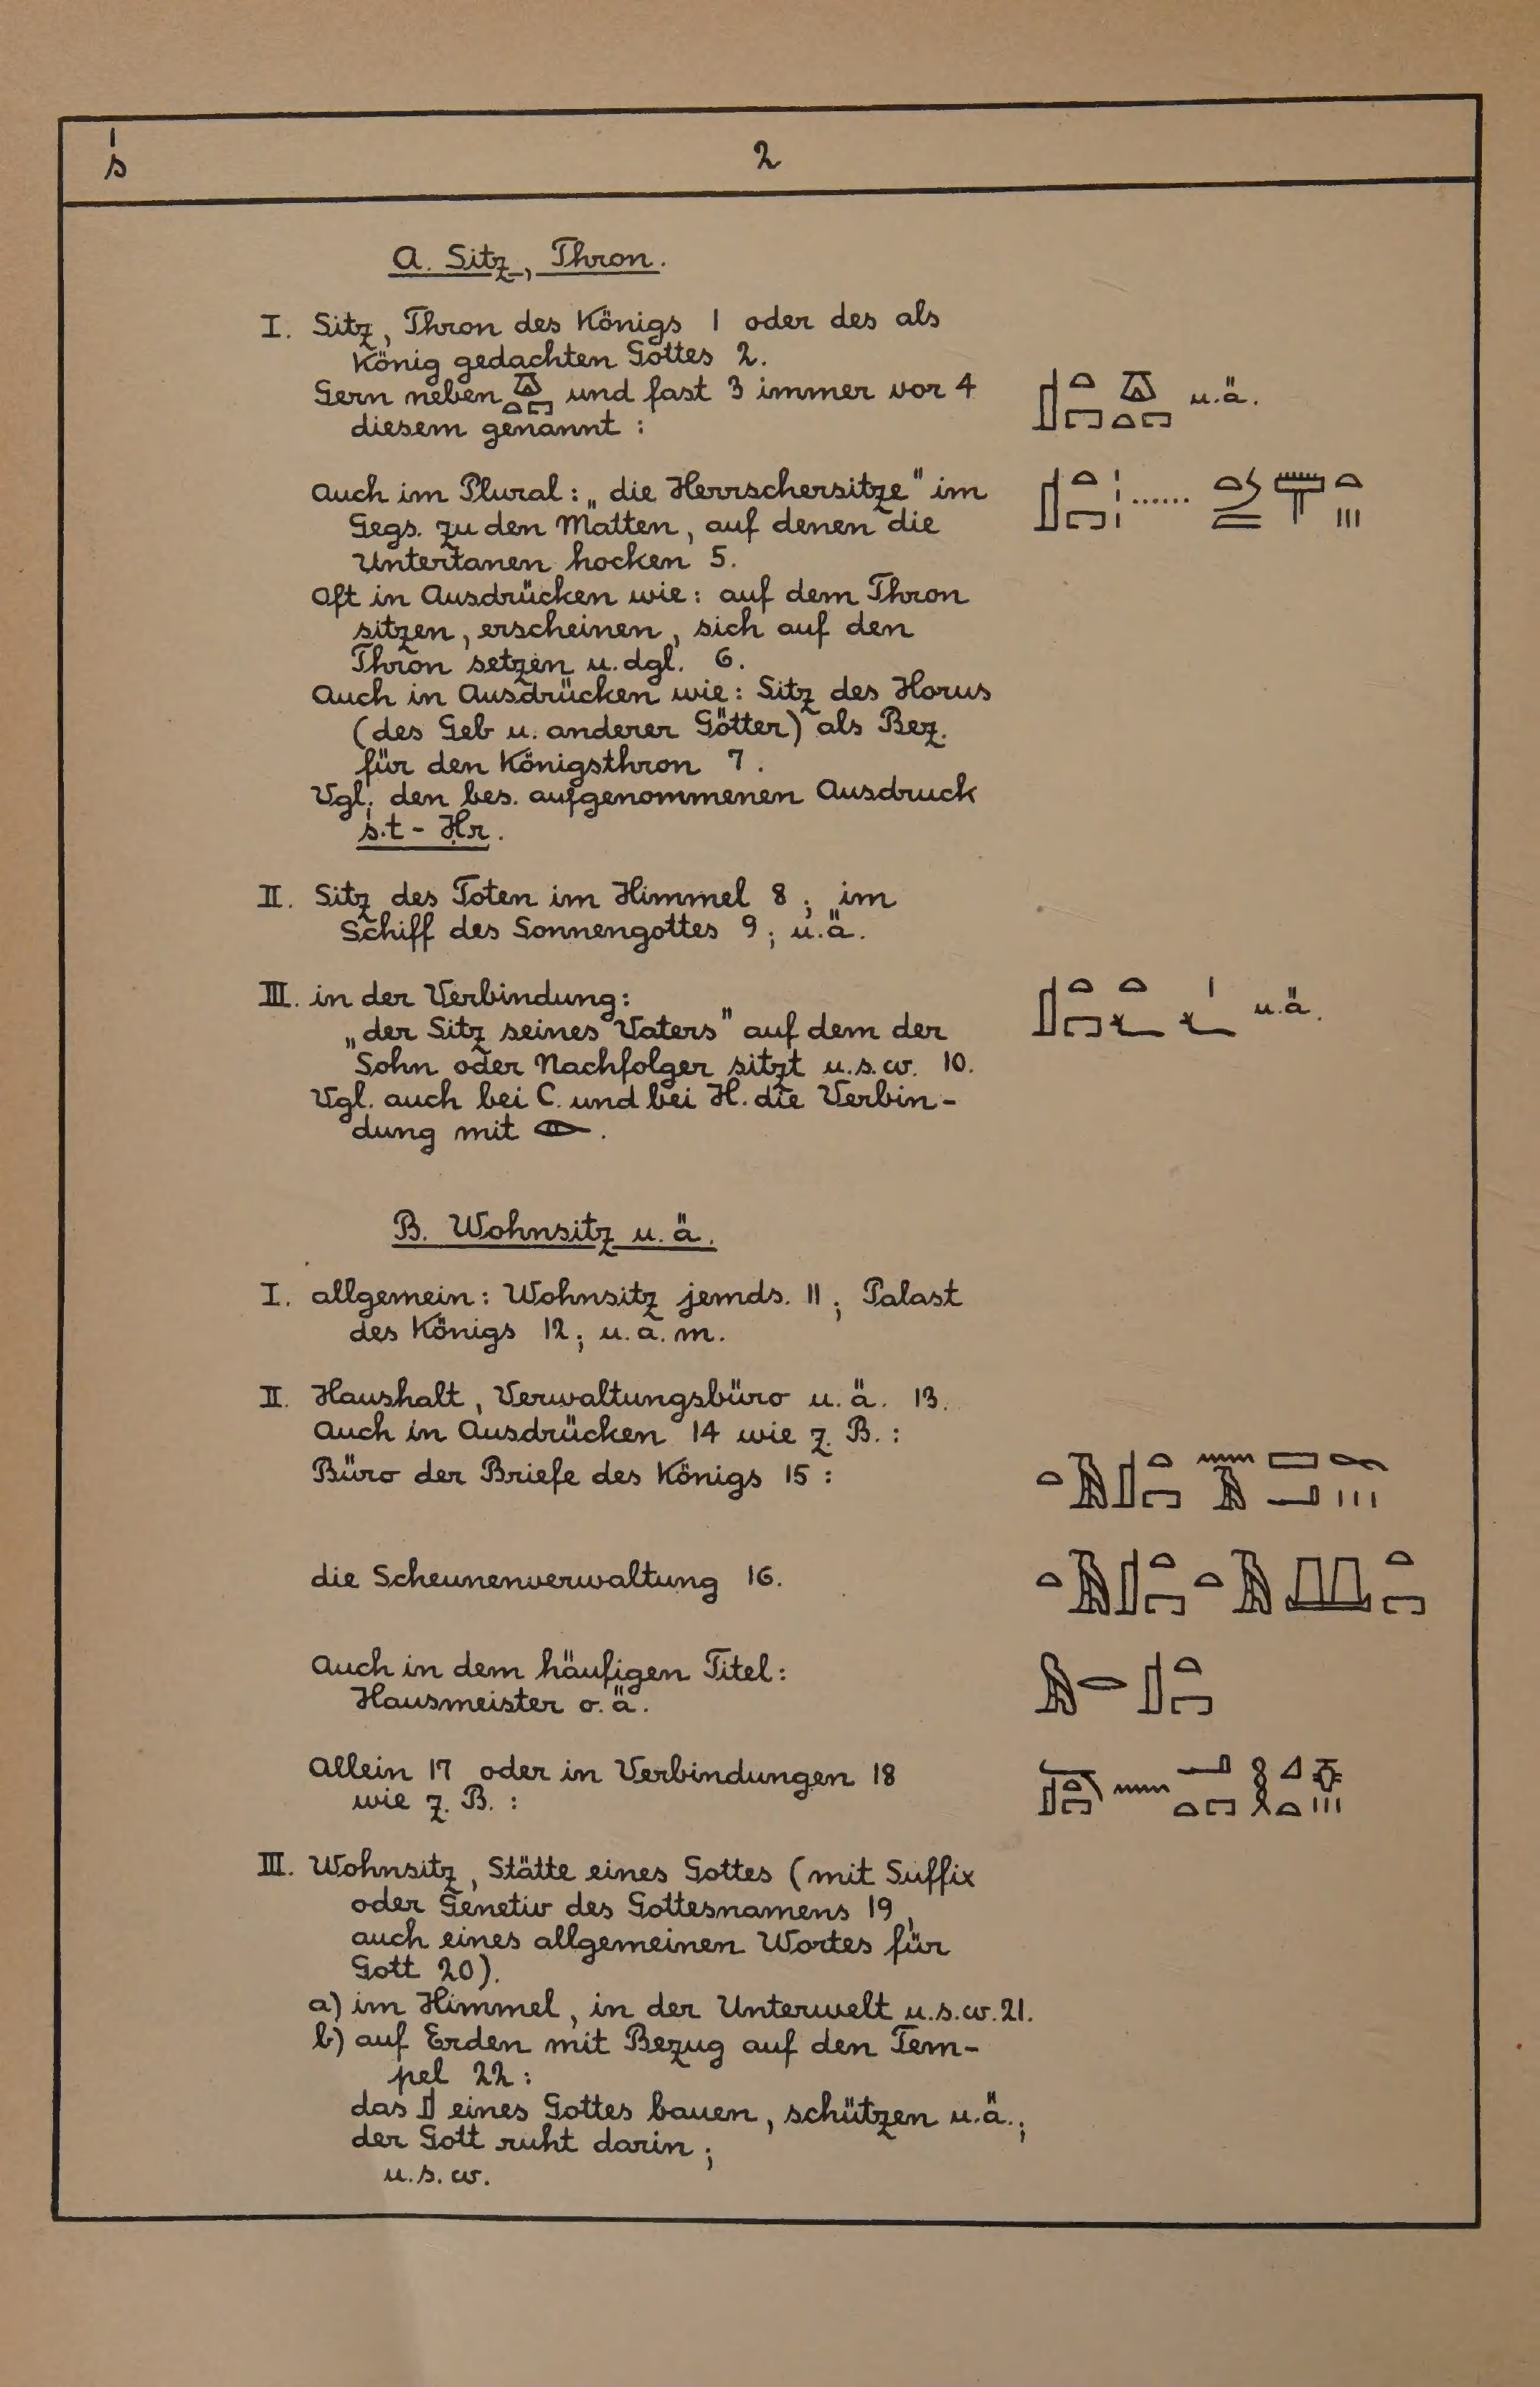 ś
2
A. Sitz, Thron.
I. Sitz, Thron des Königs 1 oder des als
König gedachten Gottes 2.
Gern neben und fast 3 immer vor 4
u.ä.
diesem genannt :
Auch im Plural: „die Herrschersitze" im
......
Gegs. zu den Matten, auf denen die
Untertanen hocken 5.
Oft in Ausdrücken wie: auf dem Thron
sitzen, erscheinen, sich auf den
Thron setzen u. dgl. 6.
Auch in Ausdrücken wie: Sitz des Horus
(des Geb u. anderer Götter) als Bez.
für den Königsthron 7.
Vgl. den bes. aufgenommenen Ausdruck
ś.t - Ḥr.
II. Sitz des Toten im Himmel 8; im
Schiff des Sonnengottes 9; u.ä.
III. in der Verbindung:
u.ä.
„der Sitz seines Vaters" auf dem der
Sohn oder Nachfolger sitzt u.s.w. 10.
Vgl. auch bei C. und bei H. die Verbin-
dung mit .
B. Wohnsitz u.ä.
I. allgemein: Wohnsitz jemds. 11; Palast
des Königs 12; u.a.m.
II. Haushalt, Verwaltungsbüro u.ä. 13.
Auch in Ausdrücken 14 wie z. B. :
Büro der Briefe des Königs 15 :
die Scheunenverwaltung 16.
Auch in dem häufigen Titel:
Hausmeister o.ä.
Allein 17 oder in Verbindungen 18
wie z. B. :
III. Wohnsitz, Stätte eines Gottes (mit Suffix
oder Genetiv des Gottesnamens 19,
auch eines allgemeinen Wortes für
Gott 20).
a) im Himmel, in der Unterwelt u.s.w. 21.
b) auf Erden mit Bezug auf den Tem-
pel 22 :
das 𓊨 eines Gottes bauen, schützen u.ä.;
der Gott ruht darin;
u.s.w.